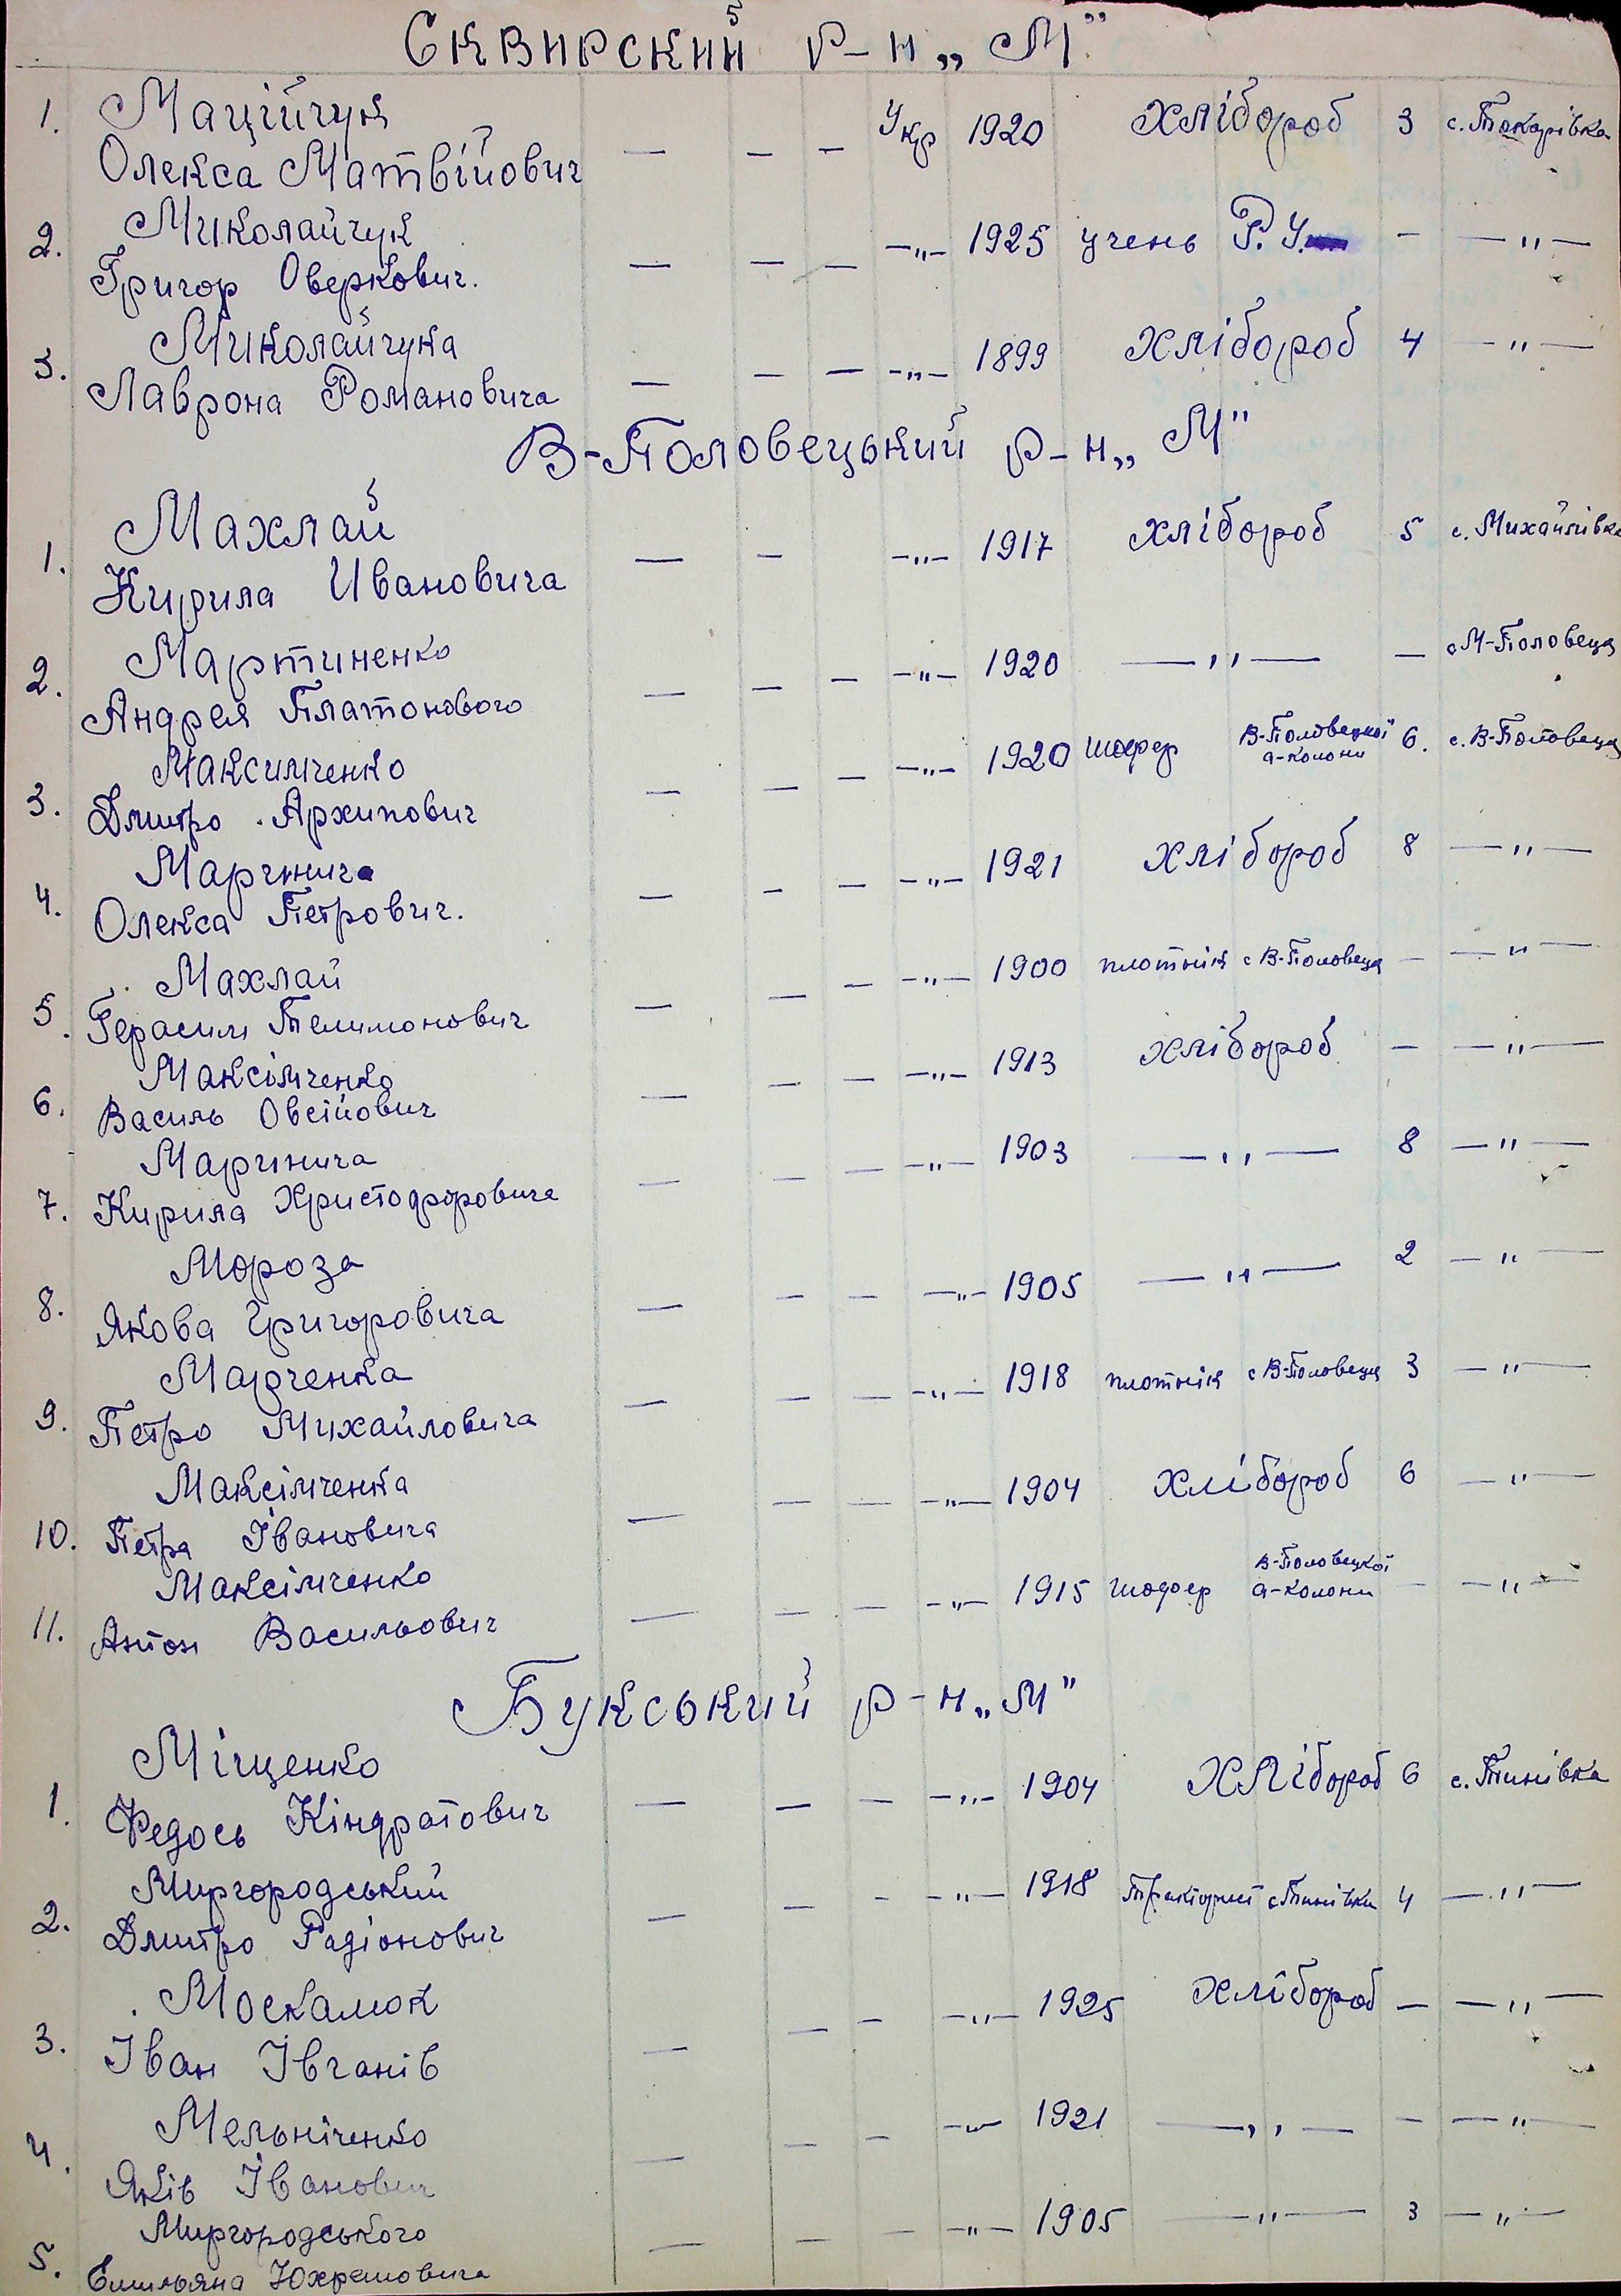 Сквирский р-н „М"
1. Маційчук
Олекса Матвійович — — — Укр 1920 Хлібороб 3 с. Токарівка
2. Миколайчук
Григор Оверкович. — — — —„— 1925 учень Р. У. - —„—
3. Миколайчука
Лаврона Романовича — — — —„— 1899 Хлібороб 4 —„—
В-Половецький р-н „М"
1. Махлай
Кирила Ивановича — — —„— 1917 хлібороб 5 с. Михайлівка
2. Мартиненко
Андрея Платонового — — — —„— 1920 —„— — с М-Половеця
3. Максимченко
Дмитро Архипович — — — —„— 1920 шофер В-Половецкої а-колони 6. с. В-Половеця
4. Маринича
Олекса Петрович. — — — —„— 1921 хлібороб 8 —„—
5. Махлай
Герасим Телимонович — — — —„— 1900 плотнік с В-Половеця — —„—
6. Максімченко
Василь Овсійович — — — —„— 1913 хлібороб — —„—
7. Маринича
Кирила Христофоровича — — — —„— 1903 —„— 8 —„—
8. Мороза
Якова Григоровича — — — —„— 1905 —„— 2 —„—
9. Марченка
Петро Михайловича — — — —„— 1918 плотнік с В-Половеця 3 —„—
10. Максімченка
Петра Івановича — — — —„— 1904 Хлібороб 6 —„—
11. Максімченко
Антон Васильович — — — —„— 1915 шофер В-Половецкої а-колони — —„—
Букський р-н „М"
1. Міщенко
Федось Кіндратович — — — —„— 1904 Хлібороб 6 с. Тинівка
2. Миргородський
Дмитро Радіонович — — - —„— 1918 Тракторист с Тинівки 4 —„—
3. Москалюк
Іван Івганів — — — —„— 1925 Хлібороб — —„—
4. Мельніченко
Яків Іванович — — — —„— 1921 —„— — —„—
5. Миргородського
Емильяна Юхремовича — — — —„— 1905 —„— 3 —„—